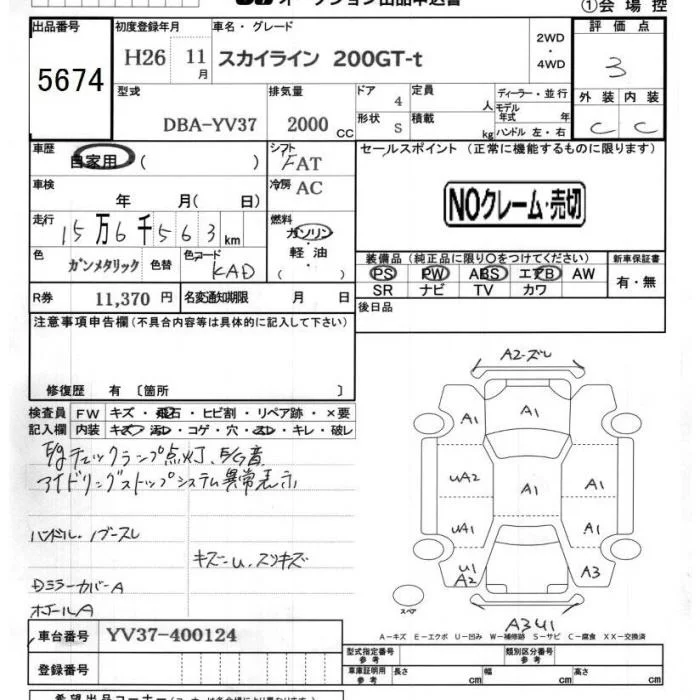 オークション出品申込書
①会場控
出品番号 初度登録年月 車名・グレード 2WD・4WD 評価点
5674 H26 11月 スカイライン 200GT-t 3
型式 排気量 ドア 4 定員 人 ディーラー・並行 外装 内装
DBA-YV37 2000 CC 形状 S 積載 kg モデル年式 年 ハンドル 左・右 C C
車歴 自家用 ( ) シフト FAT セールスポイント (正常に機能するものに限ります)
車検 年 月( 日) 冷房 AC
NOクレーム・売切
走行 15万6千563km 燃料 ガソリン
軽油
( )
色 ガンメタリック 色替 色コード KAD
装備品 (純正品に限り〇をつけてください) 新車保証書
PS PW ABS エアB AW 有・無
SR ナビ TV カワ
R券 11,370円 名変通知期限 月 日
後日品
注意事項申告欄(不具合内容等は具体的に記入して下さい)
修復歴 有 〔箇所 〕
検査員 FW キズ・飛石・ヒビ割・リペア跡・×要
記入欄 内装 キズ・汚レ・コゲ・穴・スレ・キレ・破レ
E/gチェックランプ点灯、E/g音
アイドリングストップシステム異常表示
ハンドル・ノブスレ
キズ=U、スリキズ
DミラーカバーA
ホイールA
A2-ズレ
A1
A1
UA2 A1 A1
UA1 A1
U1
A2 A3
スペア
A3U1
A-キズ E-エクボ U-凹み W-補修跡 S-サビ C-腐食 XX-交換済
車台番号 YV37-400124
型式指定番号 参考 類別区分番号 参考
登録番号 車庫証明用 参考 長さ cm 幅 cm 高さ cm